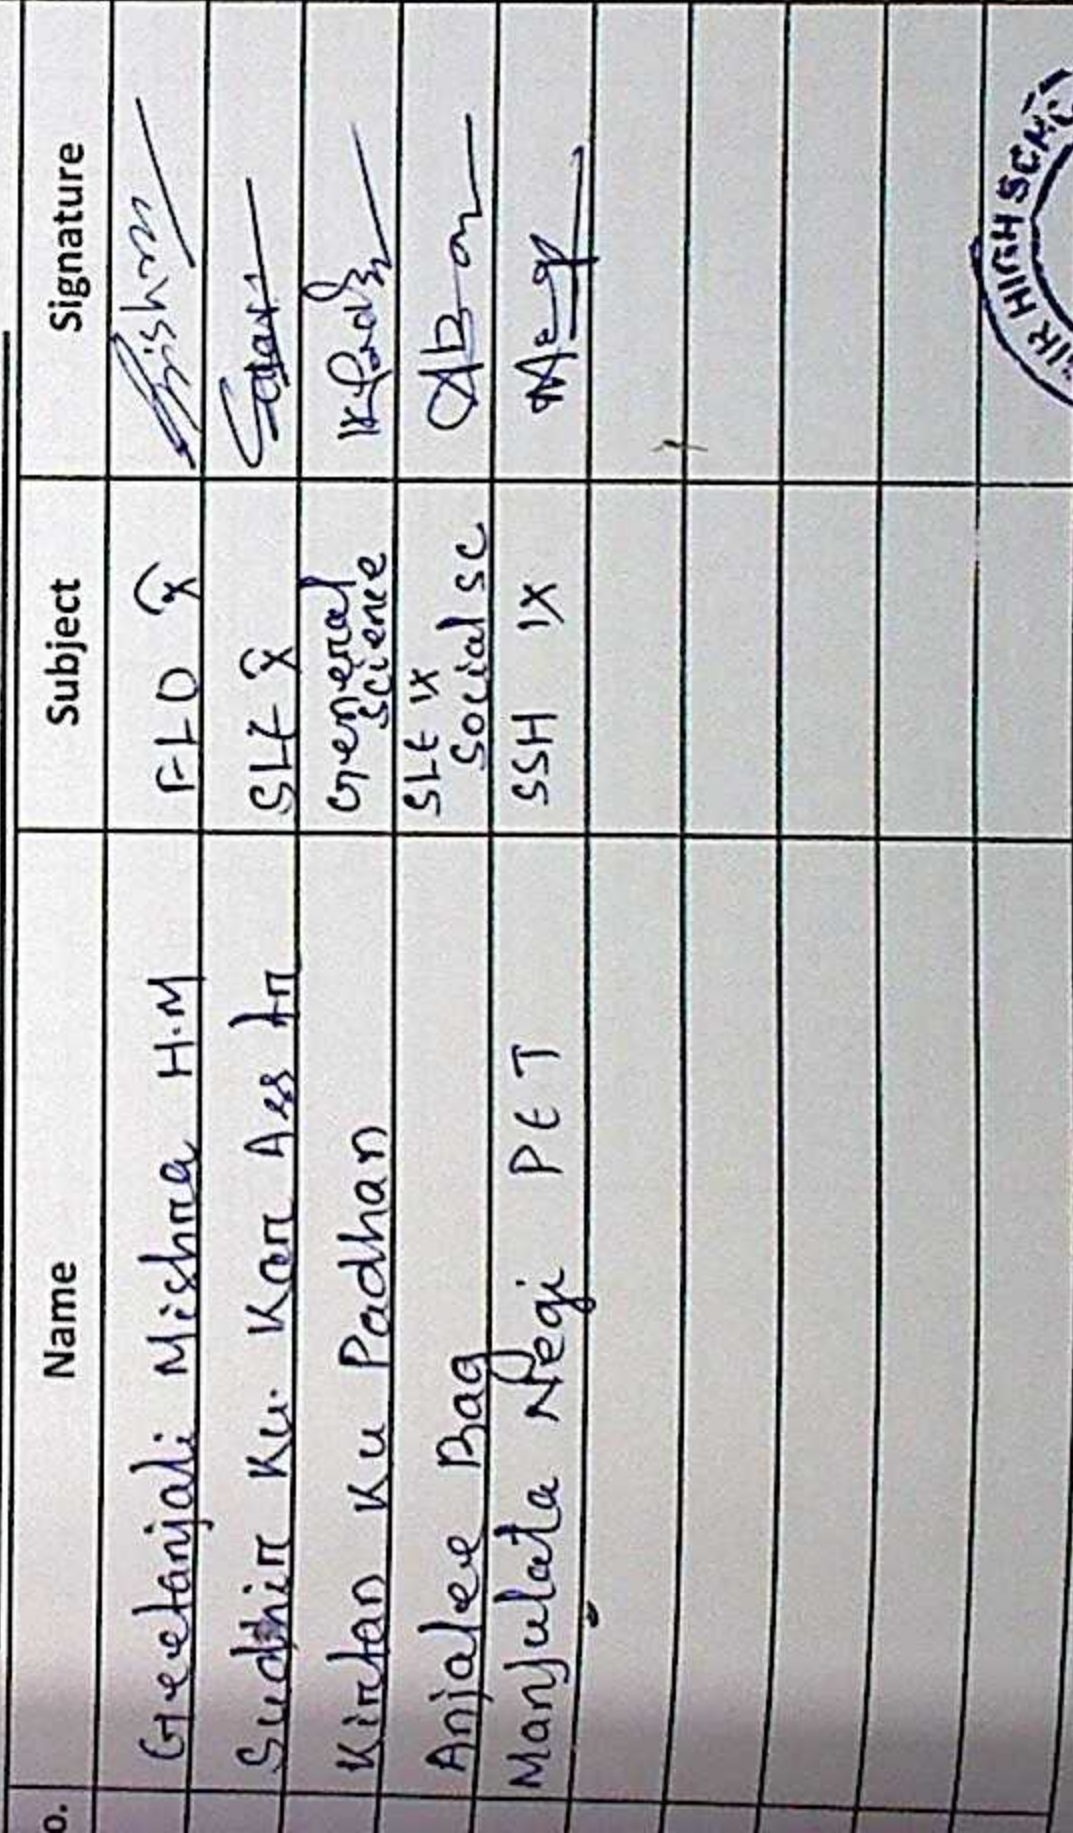 o. Name Subject Signature
Geetanjali Mishra H.M FLO X
Sudhir Ku. Kar Ass tr SLE X
Kirtan Ku Padhan General Science
Anjalee Bag SLE IX Social Sc
Manjulata Negi PET SSH IX
HIGH SCHO